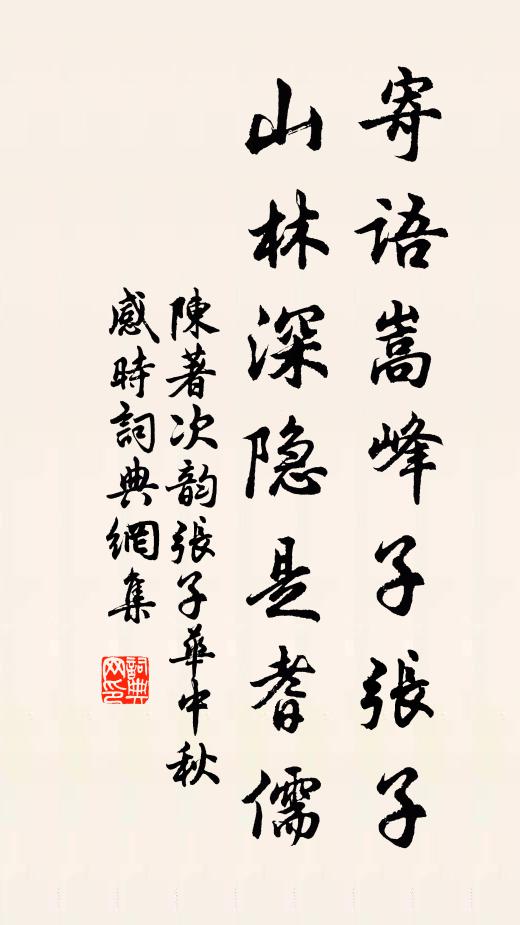 寄語嵩峰子張子
山林深隐是耆儒
陳著次韵張子華中秋
感時詞典網集
詞典網印